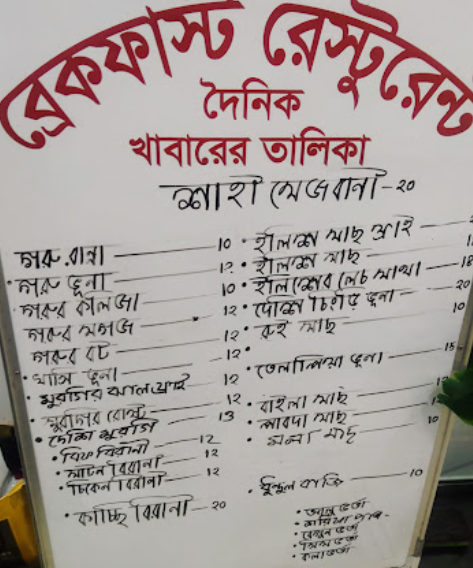 ব্রেকফাস্ট রেস্টুরেন্ট
দৈনিক
খাবারের তালিকা
শাহী মেজবানী - ২০
গরু রান্না — 10
গরু ভুনা — 12
গরুর কলিজা — 10
গরুর মগজ — 12
গরুর বট — 12
খাসি ভুনা — 12
মুরগির ঝাল ফ্রাই — 12
মুরগির রোস্ট — 12
দেশি মুরগি — 13
বিফ বিরানী — 12
মাটন বিরানী — 12
চিকেন বিরানী — 12
কাচ্চি বিরানী — 20
ইলিশ মাছ ফ্রাই
ইলিশ মাছ
ইলিশের লেচ মাথা — 18
দেশি চিংড়ি ভুনা — 20
রুই মাছ — 10
তেলাপিয়া ভুনা — 15
বাইলা মাছ
পাবদা মাছ
মলা মাছ — 10
বাজি — 10
আলু ভর্তা
বেগুন ভর্তা
সিম ভর্তা
কলা ভর্তা